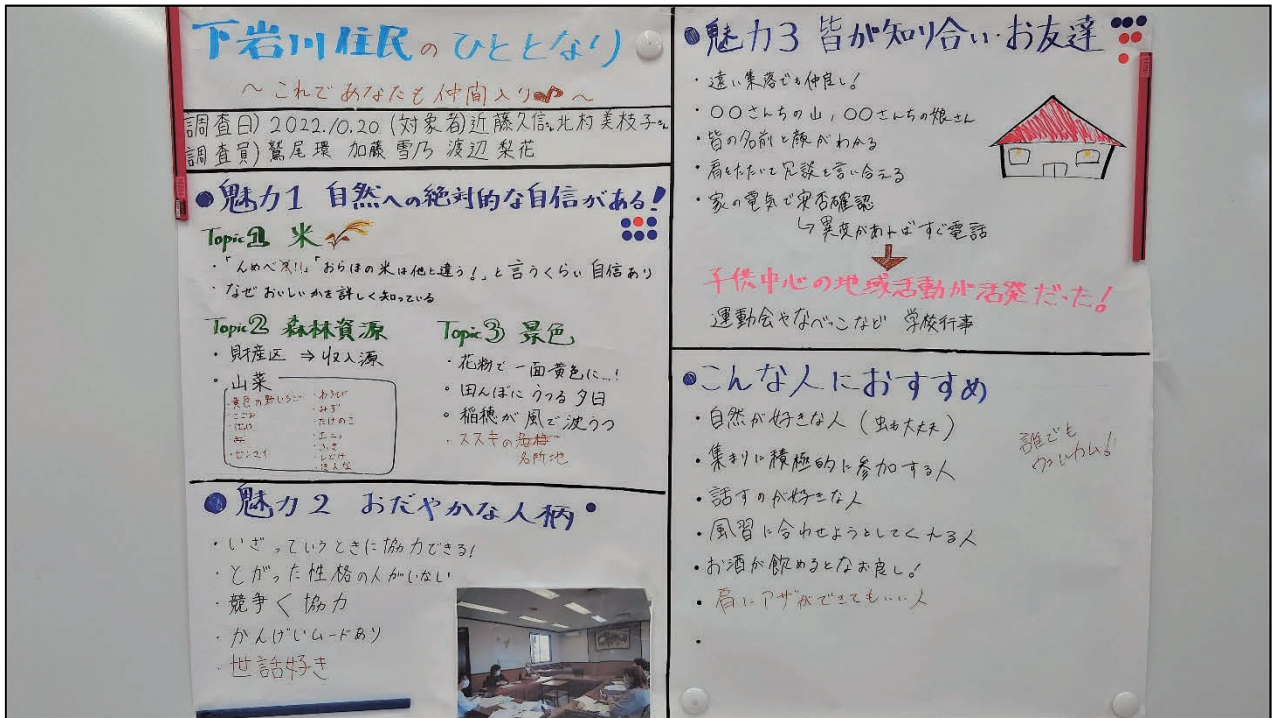 下岩川住民のひととなり
～これであなたも仲間入り♪～
調査日) 2022.10.20 (対象者)近藤久信さん北村美枝子さん
調査員) 鷲尾環 加藤雪乃 渡辺梨花
●魅力1 自然への絶対的な自信がある!
Topic1 米
・「んめべ〜!!」「おらほの米は他と違う!」と言うくらい自信あり
・なぜおいしいかを詳しく知っている
Topic2 森林資源
・財産区 ⇒ 収入源
・山菜
・黄色の野いちご
・こごみ
・ゼンマイ
・わらび
・みず
・たけのこ
・ふき
・しどけ
Topic3 景色
・花粉で一面黄色に…!
・田んぼにうつる夕日
・稲穂が風で波うつ
・ススキの
名所地
●魅力2 おだやかな人柄
・いざっていうときに協力できる!
・とがった性格の人がいない
・競争<協力
・かんげいムードあり
・世話好き
●魅力3 皆が知り合い・お友達
・遠い集落でも仲良し!
・〇〇さんちの山,〇〇さんちの娘さん
・皆の名前と顔がわかる
・肩をたたいて冗談を言い合える
・家の電気で安否確認
↳異変があればすぐ電話
子供中心の地域活動が活発だった!
運動会やなべっこなど 学校行事
●こんな人におすすめ
・自然が好きな人(虫も大丈夫)
・集まりに積極的に参加する人
・話すのが好きな人
・風習に合わせようとしてくれる人
・お酒が飲めるとなお良し!
・肩にアザができてもいい人
誰でも
ウェルカム!